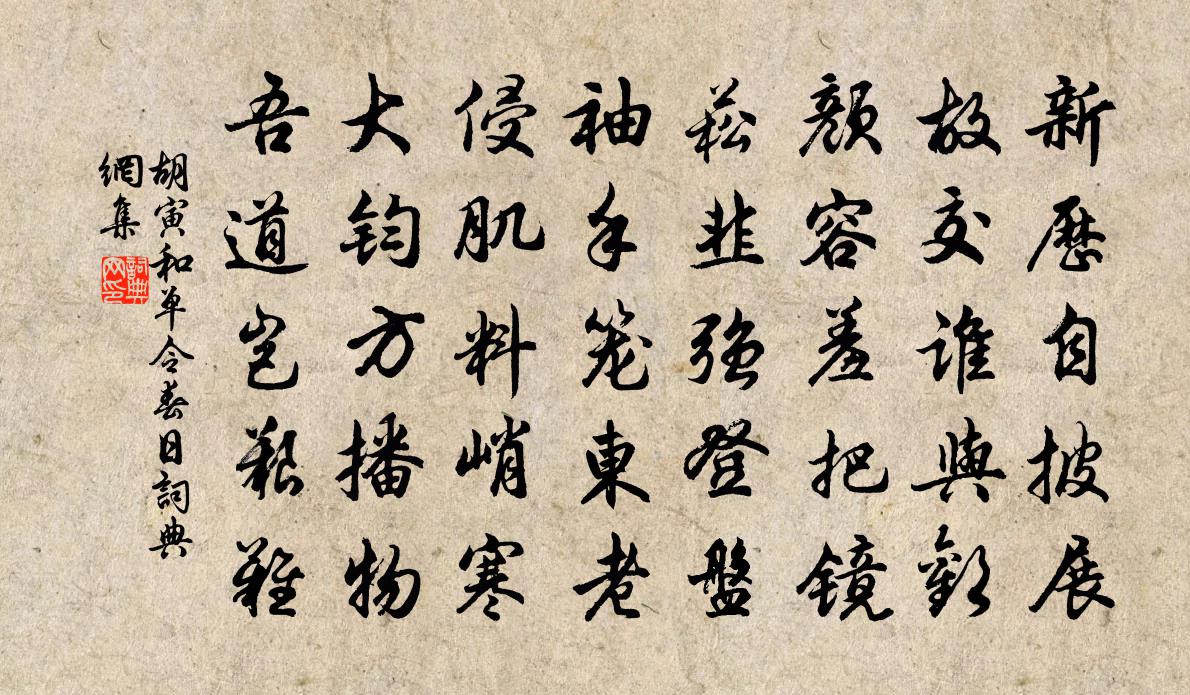 新歷自披展
故交誰與歡
顏容羞把鏡
菘韭强登盤
袖手笼東老
侵肌料峭寒
大鈞方播物
吾道豈艱難
胡寅和单令春日詞典
網集
詞典
网印